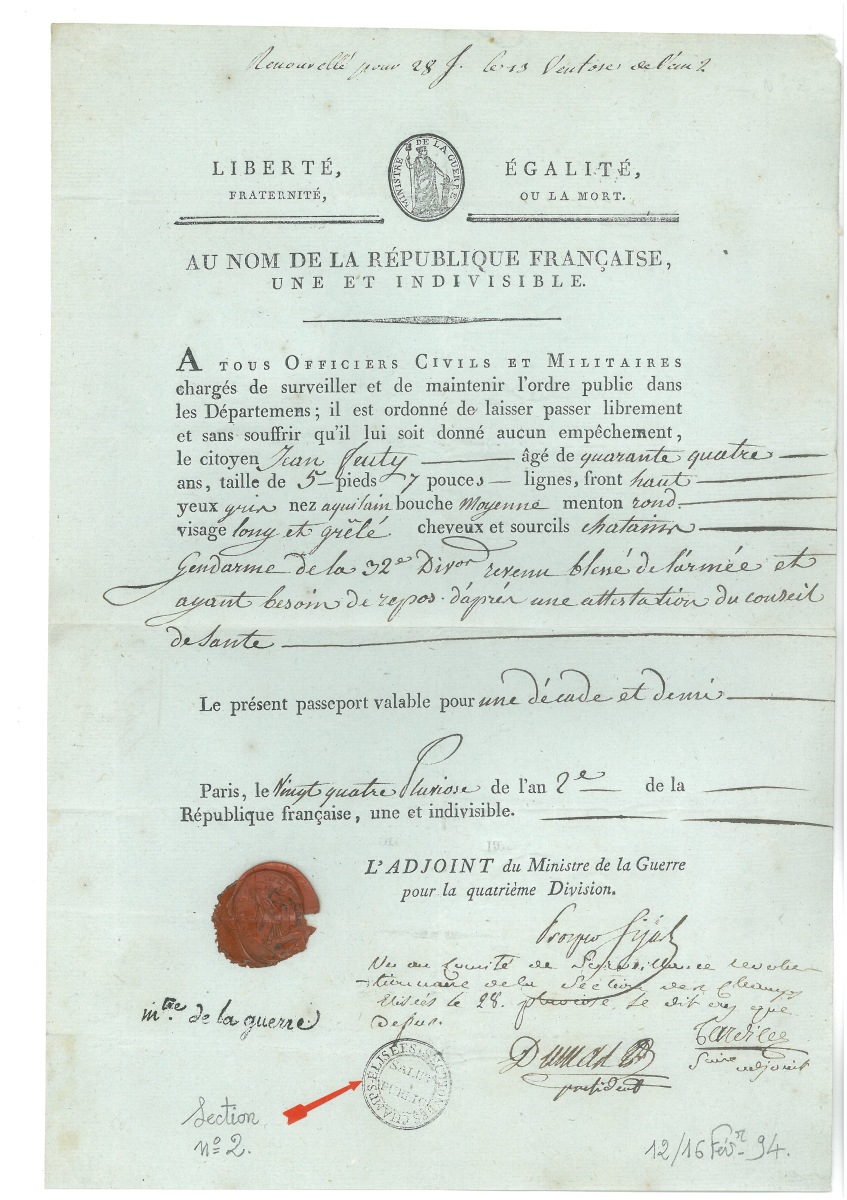 Renouvellé pour 28 J. le 13 Ventose de l'an 2
LIBERTÉ,
FRATERNITÉ,
MINISTRE DE LA GUERRE
ÉGALITÉ,
OU LA MORT.
AU NOM DE LA RÉPUBLIQUE FRANÇAISE,
UNE ET INDIVISIBLE.
A TOUS OFFICIERS CIVILS ET MILITAIRES
chargés de surveiller et de maintenir l'ordre public dans
les Départemens ; il est ordonné de laisser passer librement
et sans souffrir qu'il lui soit donné aucun empêchement,
le citoyen Jean âgé de quarante quatre
ans, taille de 5 pieds 7 pouces lignes, front haut
yeux gris nez aquilain bouche Moyenne menton rond
visage long et grêlé cheveux et sourcils chatains
Gendarme de la 32e Divon revenu blessé de l'armée et
ayant besoin de repos d'après une attestation du conseil
de Sante
Le présent passeport valable pour une décade et demi
Paris, le Vingt quatre Pluviose de l'an 2e de la
République française, une et indivisible.
L'ADJOINT du Ministre de la Guerre
pour la quatrième Division.
Prosper Sijas
Vu au Comité de Surveillance revolu-
tionnaire de la Section des Champs
Elisés le 28. pluviose le dit
mtre de la guerre
Dumas
président
adjoint
SECTION DES CHAMPS-ELISÉES
SALUT
PUBLIC
Section
No 2.
12/16 Févr. 94.